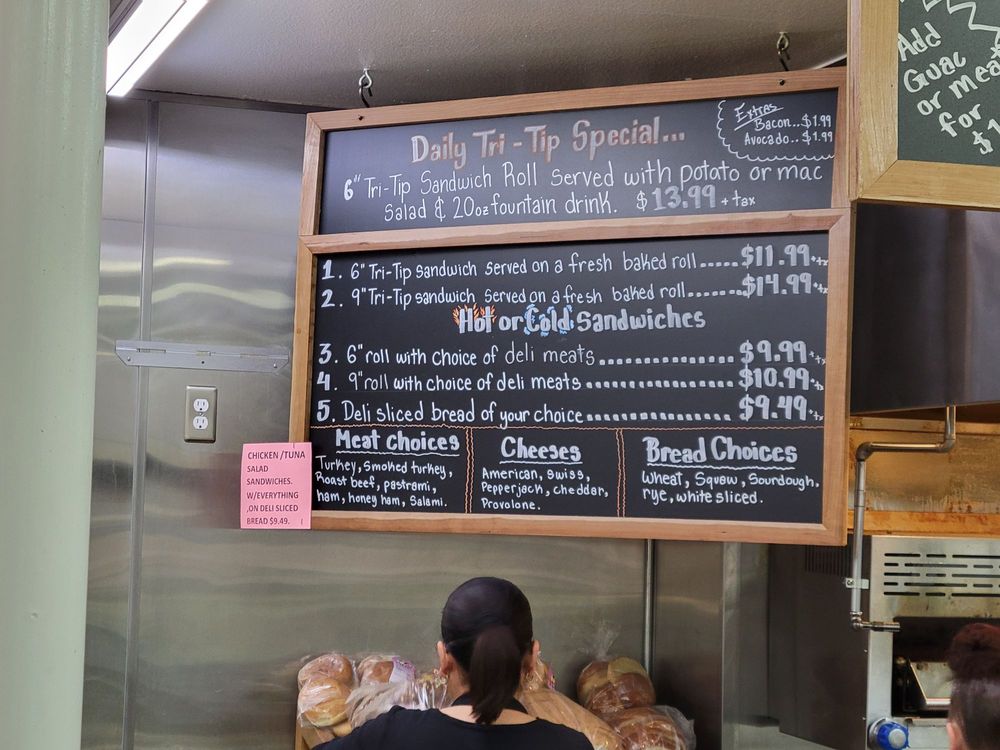 Daily Tri-Tip Special...
Extras
Bacon...$1.99
Avocado..$1.99
6" Tri-Tip Sandwich Roll served with potato or mac
Salad & 20oz fountain drink. $13.99 + tax
1. 6" Tri-Tip Sandwich served on a fresh baked roll.....$11.99
2. 9" Tri-Tip sandwich served on a fresh baked roll.......$14.99
Hot or Cold Sandwiches
3. 6" roll with choice of deli meats................$9.99
4. 9" roll with choice of deli meats..................$10.99
5. Deli sliced bread of your choice.................$9.49
Meat choices
Turkey, Smoked turkey,
Roast beef, pastrami,
ham, honey ham, Salami.
Cheeses
American, swiss,
Pepperjack, cheddar,
Provolone.
Bread Choices
Wheat, Squaw, Sourdough,
rye, white sliced.
CHICKEN /TUNA
SALAD
SANDWICHES.
W/EVERYTHING
,ON DELI SLICED
BREAD $9.49.
Add
Guac
or meat
for